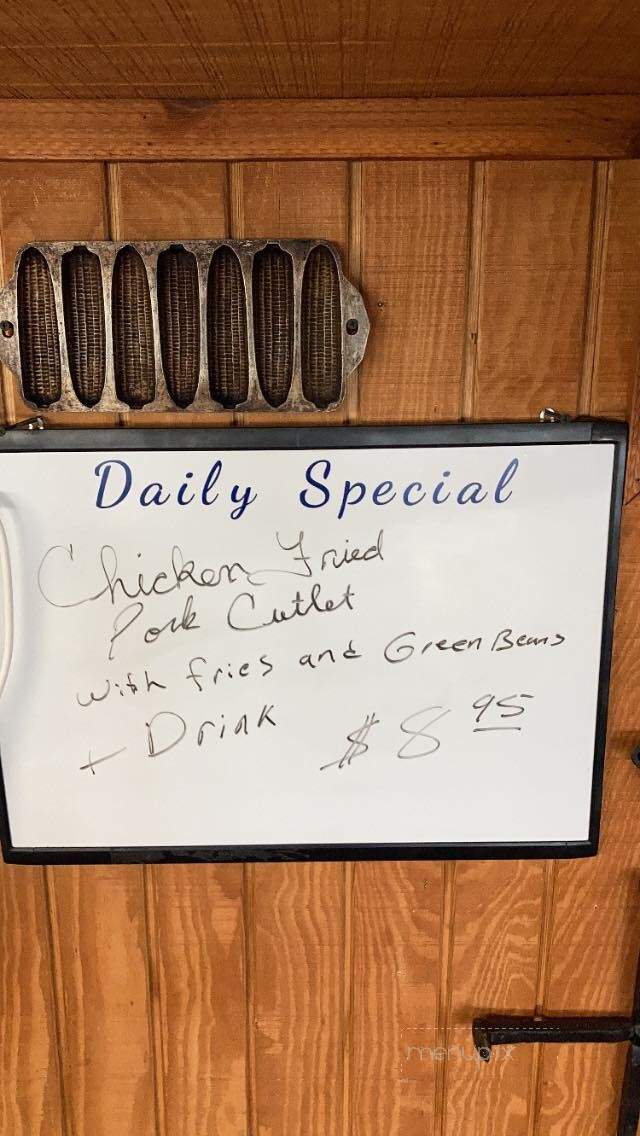 Daily Special
Chicken Fried
Pork Cutlet
with fries and Green Beans
+ Drink
$ 8 95
menupix